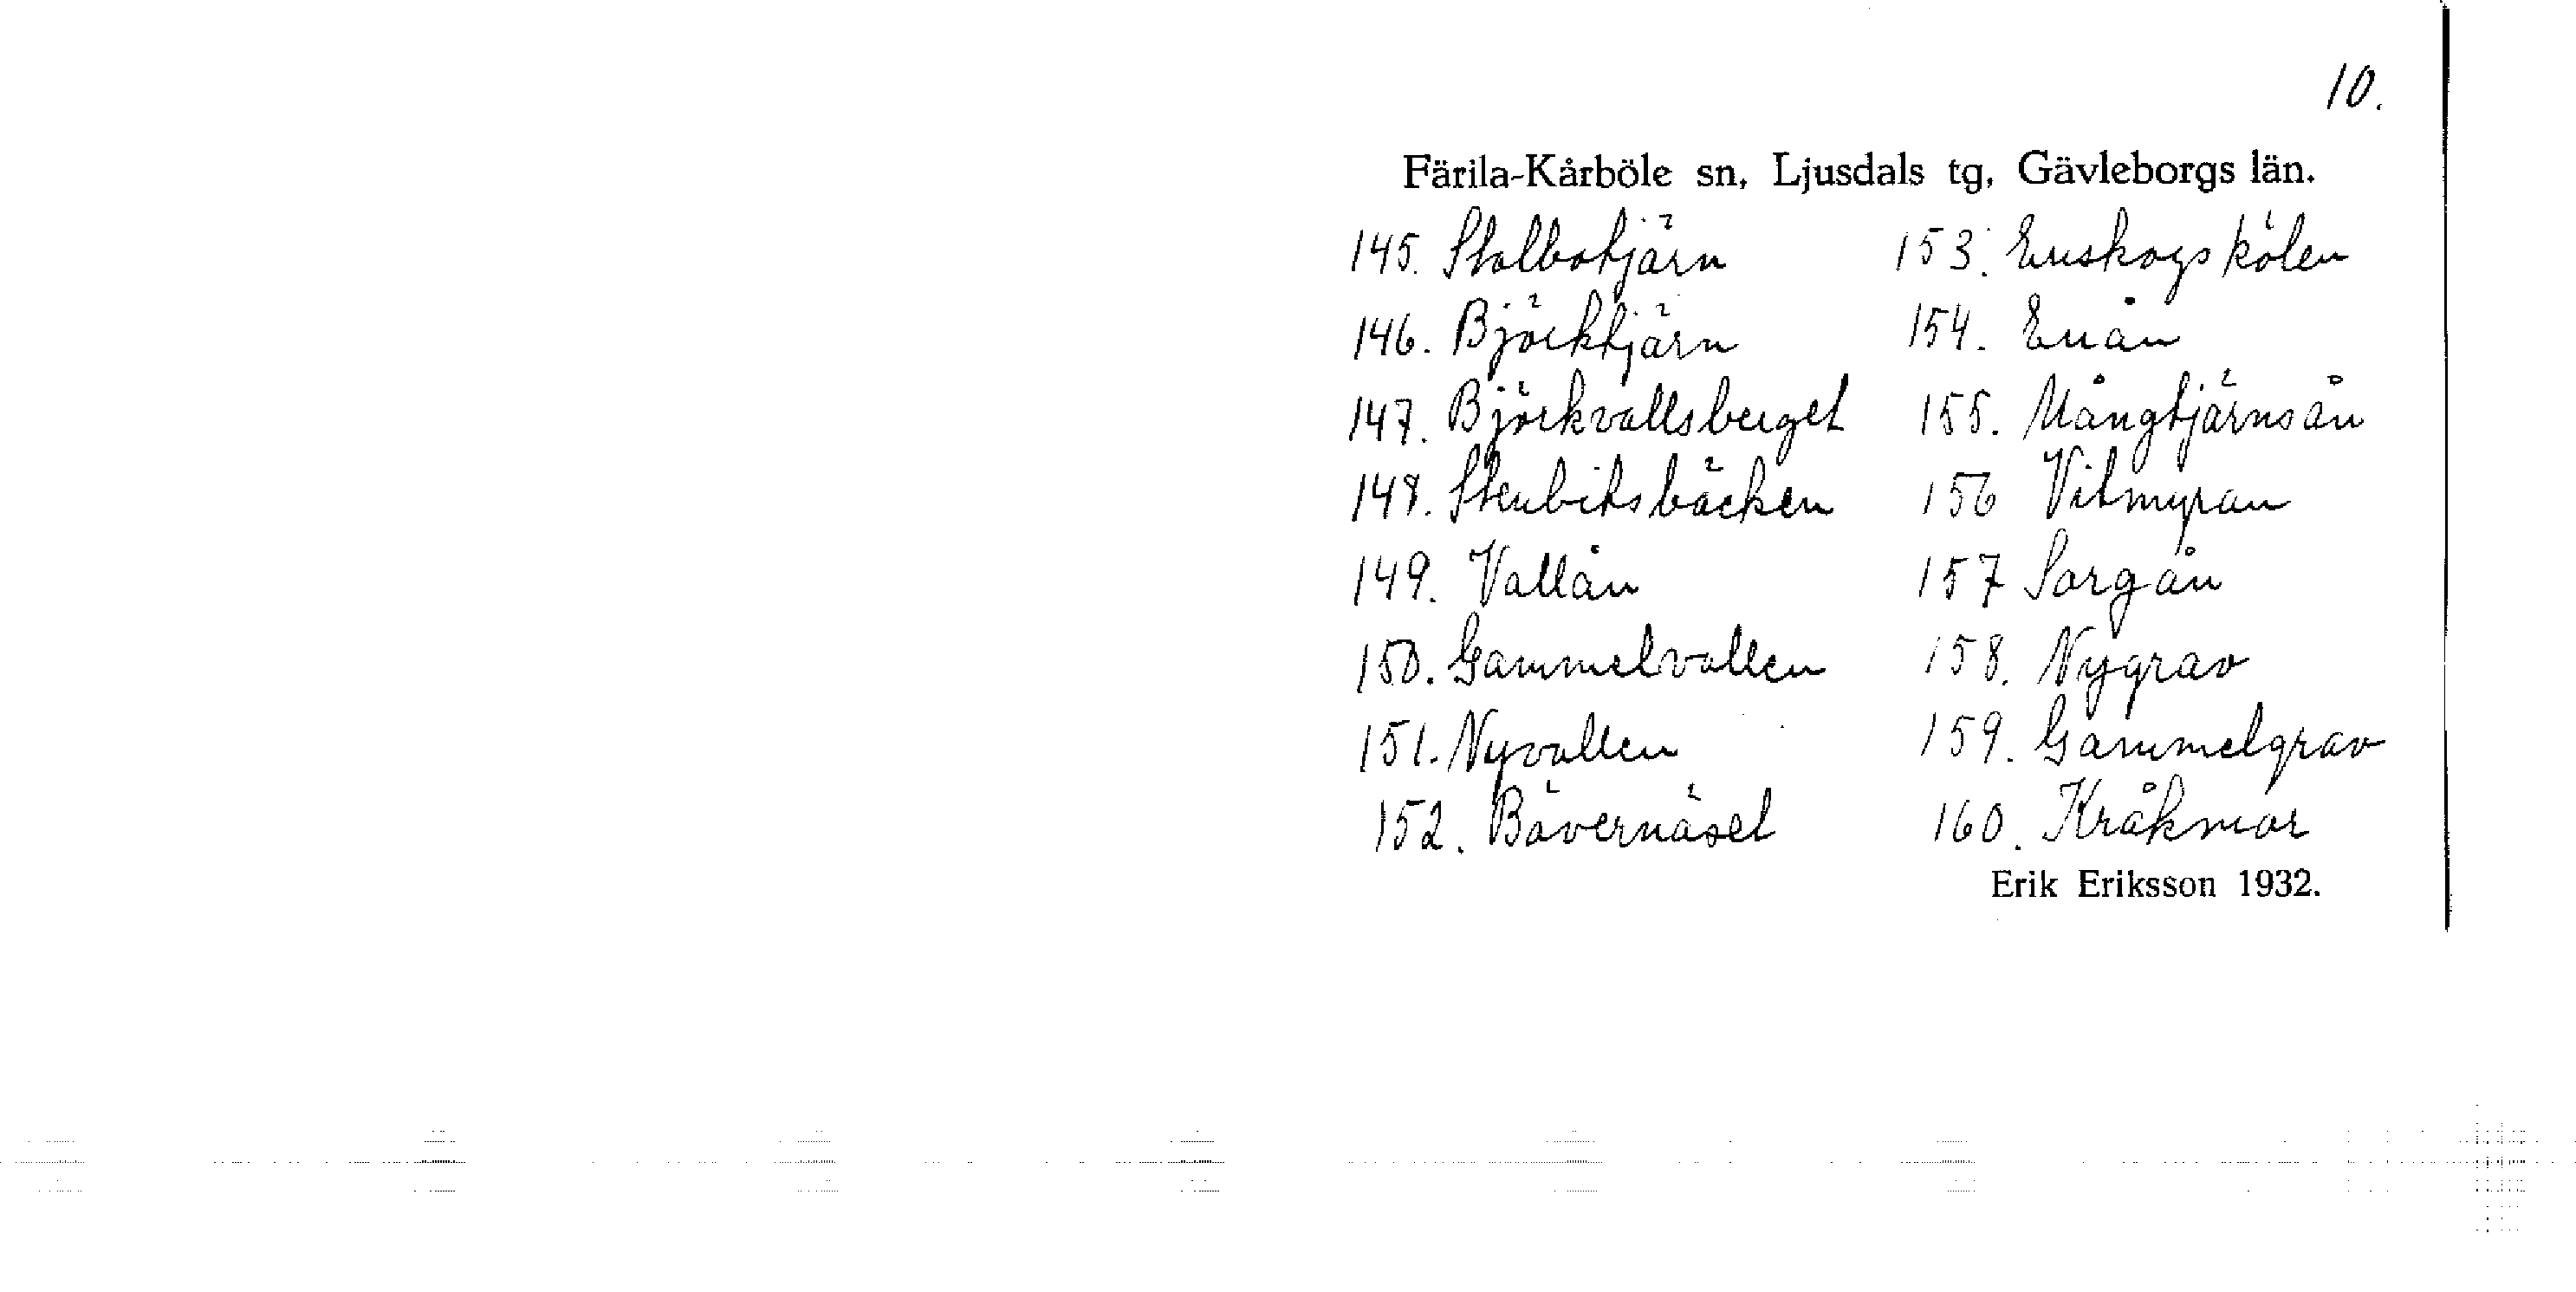 10.
Färila-Kårböle sn, Ljusdals tg, Gävleborgs län.
145. Stolbotjärn
146. Björktjärn
147. Björkvallsberget
148. Stenbitsbäcken
149. Vallån
150. Gammelvallen
151. Nyvallen
152. Bävernäset
153. Enskogskölen
154. Enån
155. Mångtjärnsån
156 Vitmyran
157 Sorgån
158. Nygrav
159. Gammelgrav
160. Kråkmor
Erik Eriksson 1932.